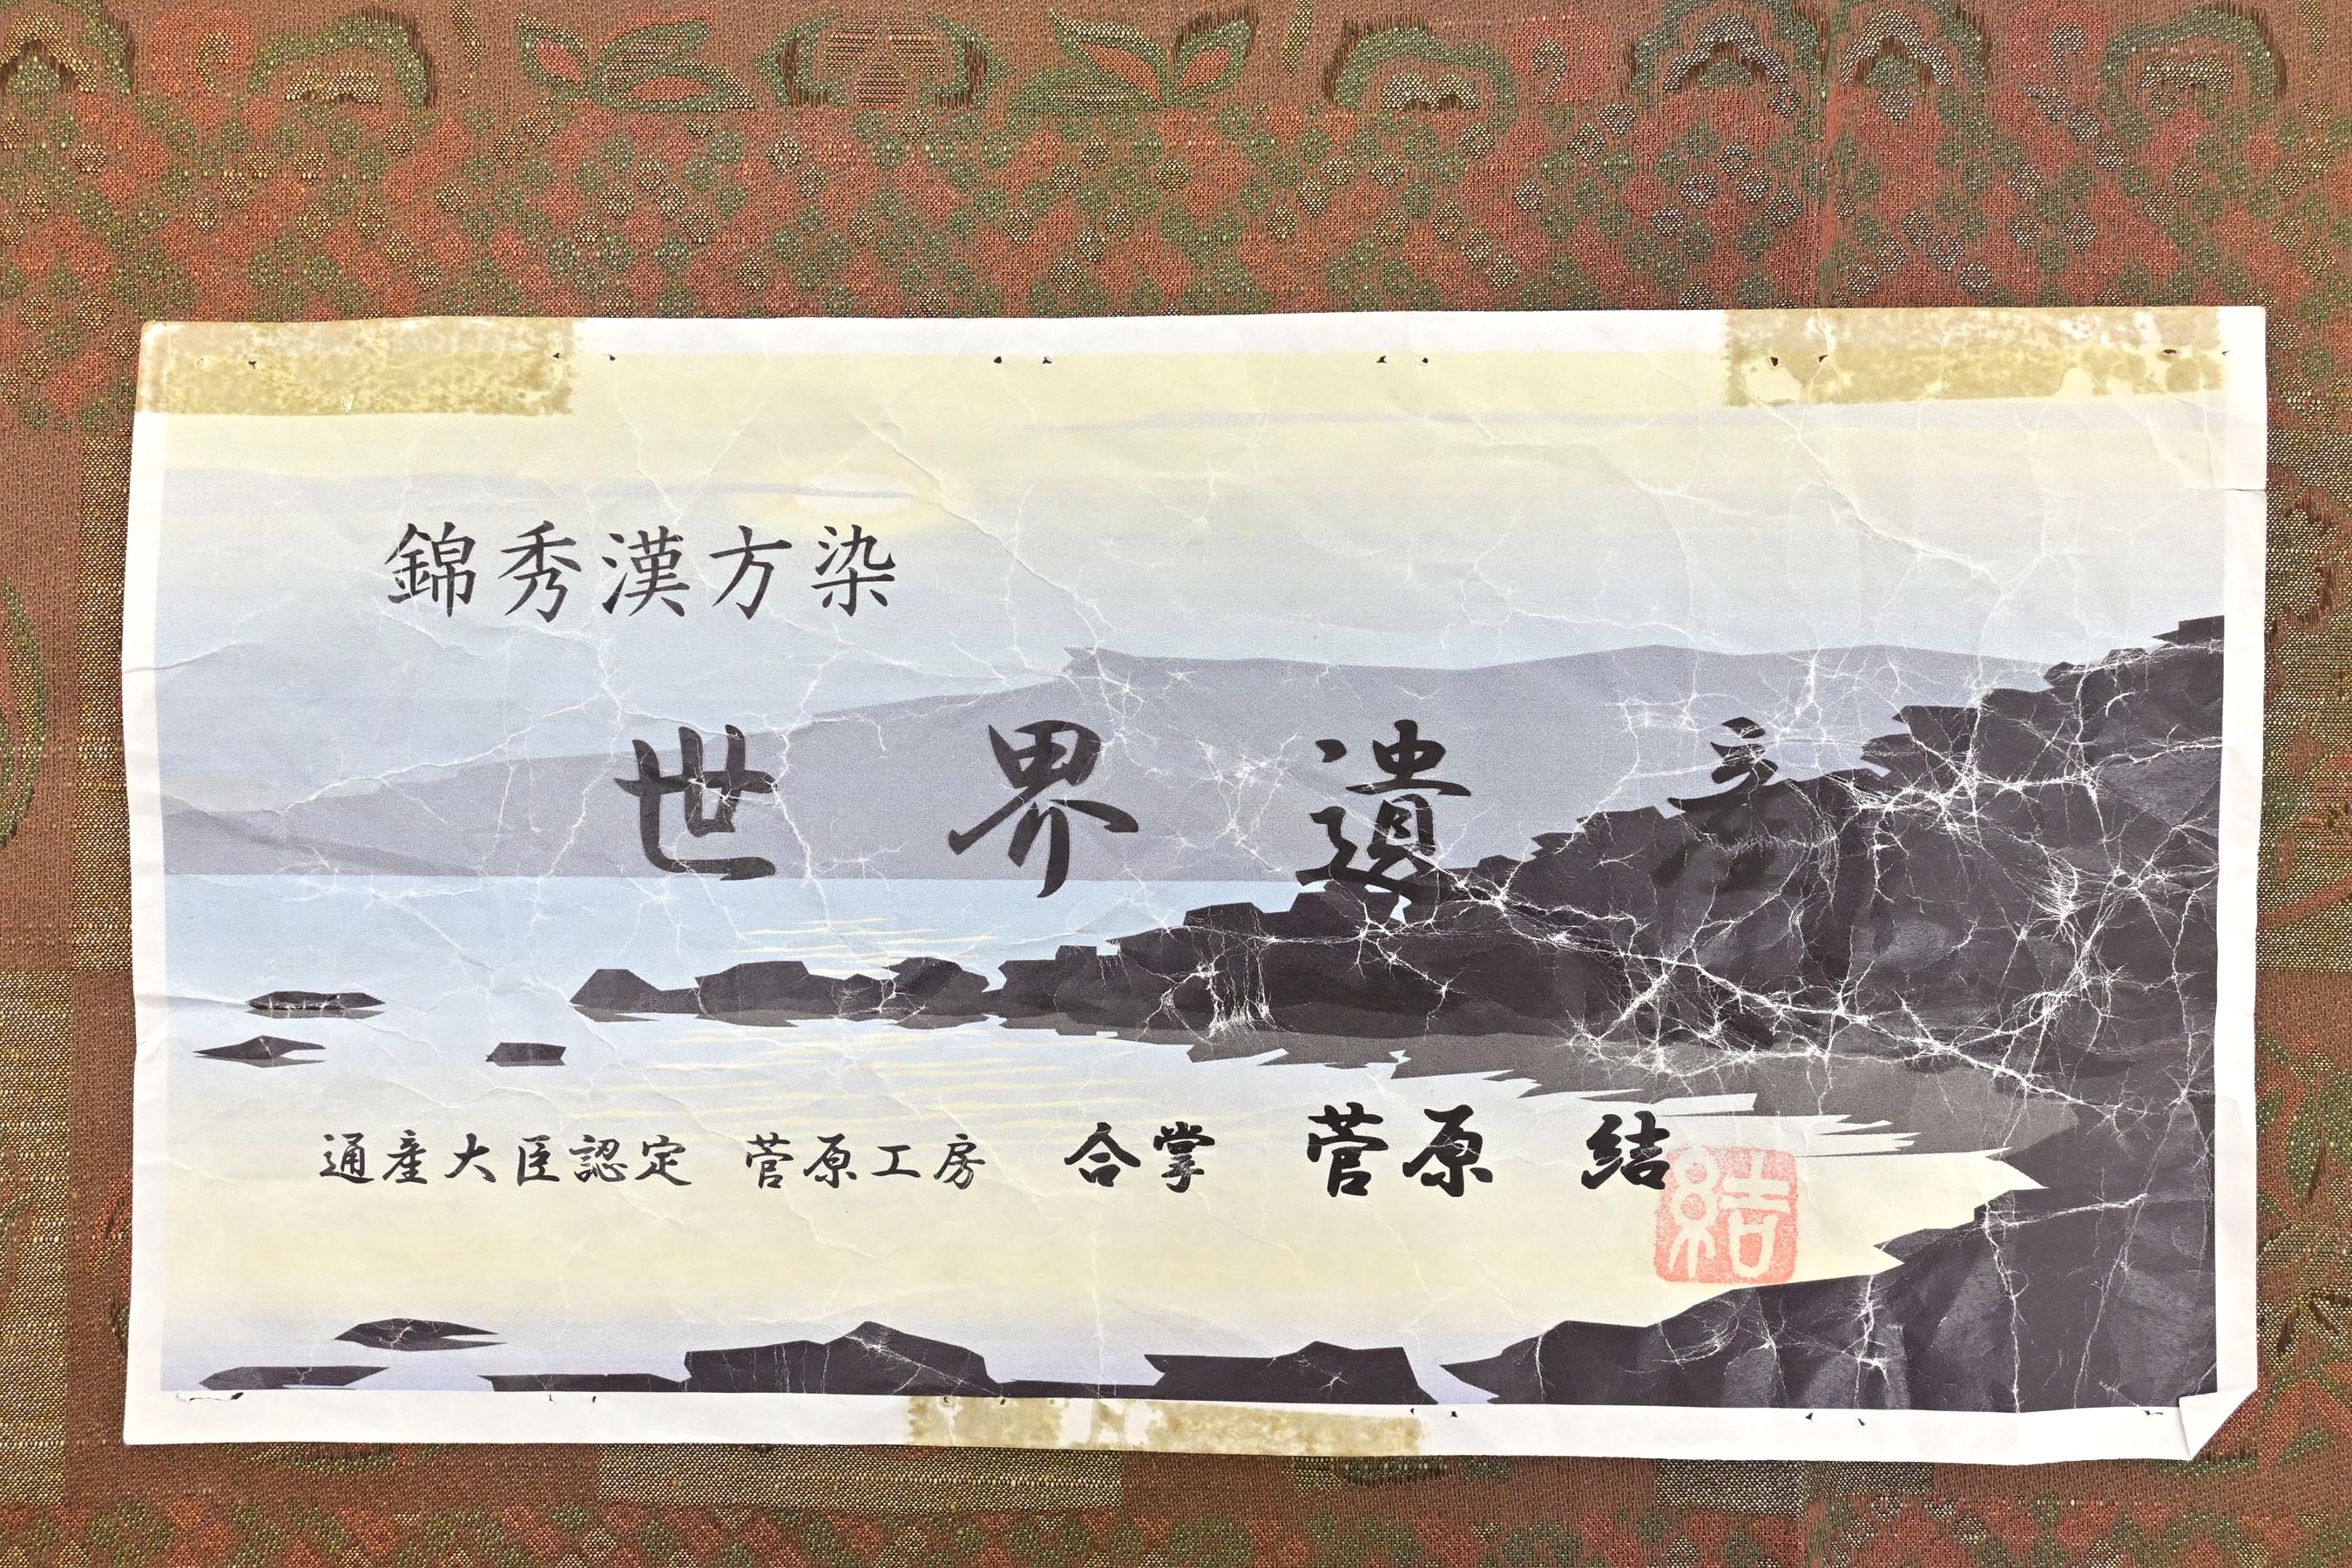 錦秀漢方染
世界遺産
通産大臣認定 菅原工房 合掌 菅原 結
結